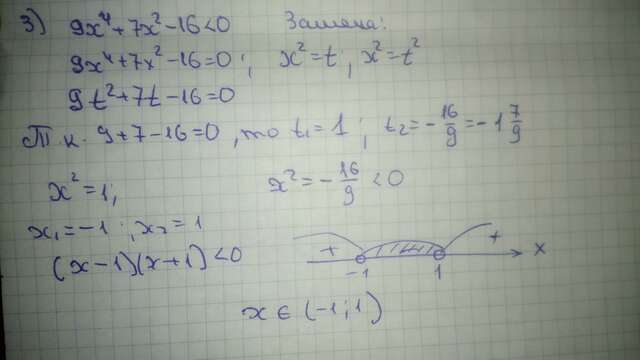 3) 9x⁴+7x²-16<0 Замена:
9x⁴+7x²-16=0; x²=t; x²=t²
9t²+7t-16=0
Т.к. 9+7-16=0, то t₁=1; t₂=-16/9=-1 7/9
x²=1; x²=-16/9<0
x₁=-1; x₂=1
(x-1)(x+1)<0
+ + x
-1 1
x∈(-1;1)